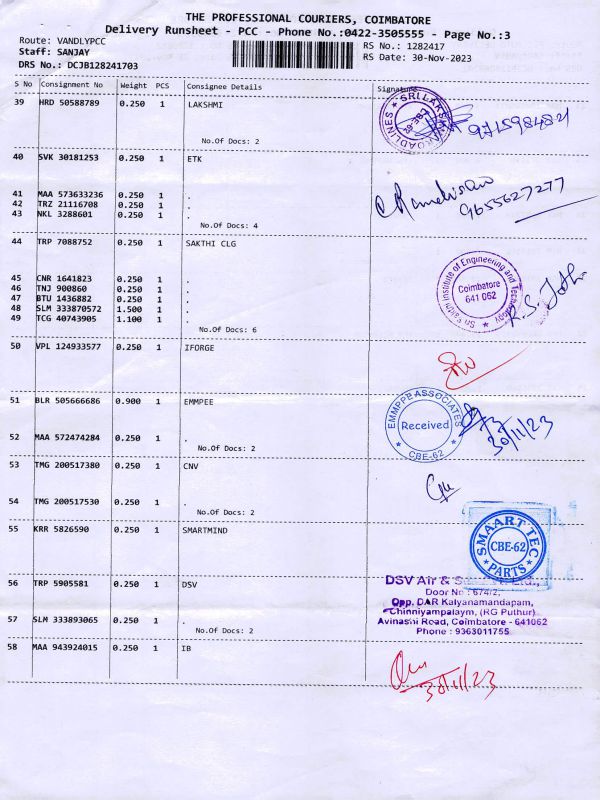 THE PROFESSIONAL COURIERS, COIMBATORE
Delivery Runsheet - PCC - Phone No.:0422-3505555 - Page No.:3
Route: VANDLYPCC
Staff: SANJAY
DRS No.: DCJB128241703
RS No.: 1282417
RS Date: 30-Nov-2023
S No Consignment No Weight PCS Consignee Details Signature
39 HRD 50588789 0.250 1 LAKSHMI
No.Of Docs: 2
40 SVK 30181253 0.250 1 ETK
41 MAA 573633236 0.250 1 .
42 TRZ 21116708 0.250 1 .
43 NKL 3288601 0.250 1 .
No.Of Docs: 4
9655627277
44 TRP 7088752 0.250 1 SAKTHI CLG
45 CNR 1641823 0.250 1 .
46 TNJ 900860 0.250 1 .
47 BTU 1436882 0.250 1 .
48 SLM 333870572 1.500 1 .
49 TCG 40743905 1.100 1 .
No.Of Docs: 6
Sri Sakthi Institute of Engineering and Technology
Coimbatore
641 062
50 VPL 124933577 0.250 1 IFORGE
51 BLR 505666686 0.900 1 EMMPEE
52 MAA 572474284 0.250 1 .
No.Of Docs: 2
EMMPPE ASSOCIATES
Received
CBE-62
30/11/23
53 TMG 200517380 0.250 1 CNV
54 TMG 200517530 0.250 1 .
No.Of Docs: 2
55 KRR 5826590 0.250 1 SMARTMIND
SMAART TEC
CBE-62
PARTS
56 TRP 5905581 0.250 1 DSV
57 SLM 333893065 0.250 1 .
No.Of Docs: 2
DSV Air & Ltd.,
Door No : 674/2,
Opp. DAR Kalyanamandapam,
Chinniyampalaym, (RG Puthur)
Avinashi Road, Coimbatore - 641062
Phone : 9363011755
58 MAA 943924015 0.250 1 IB
30/11/23